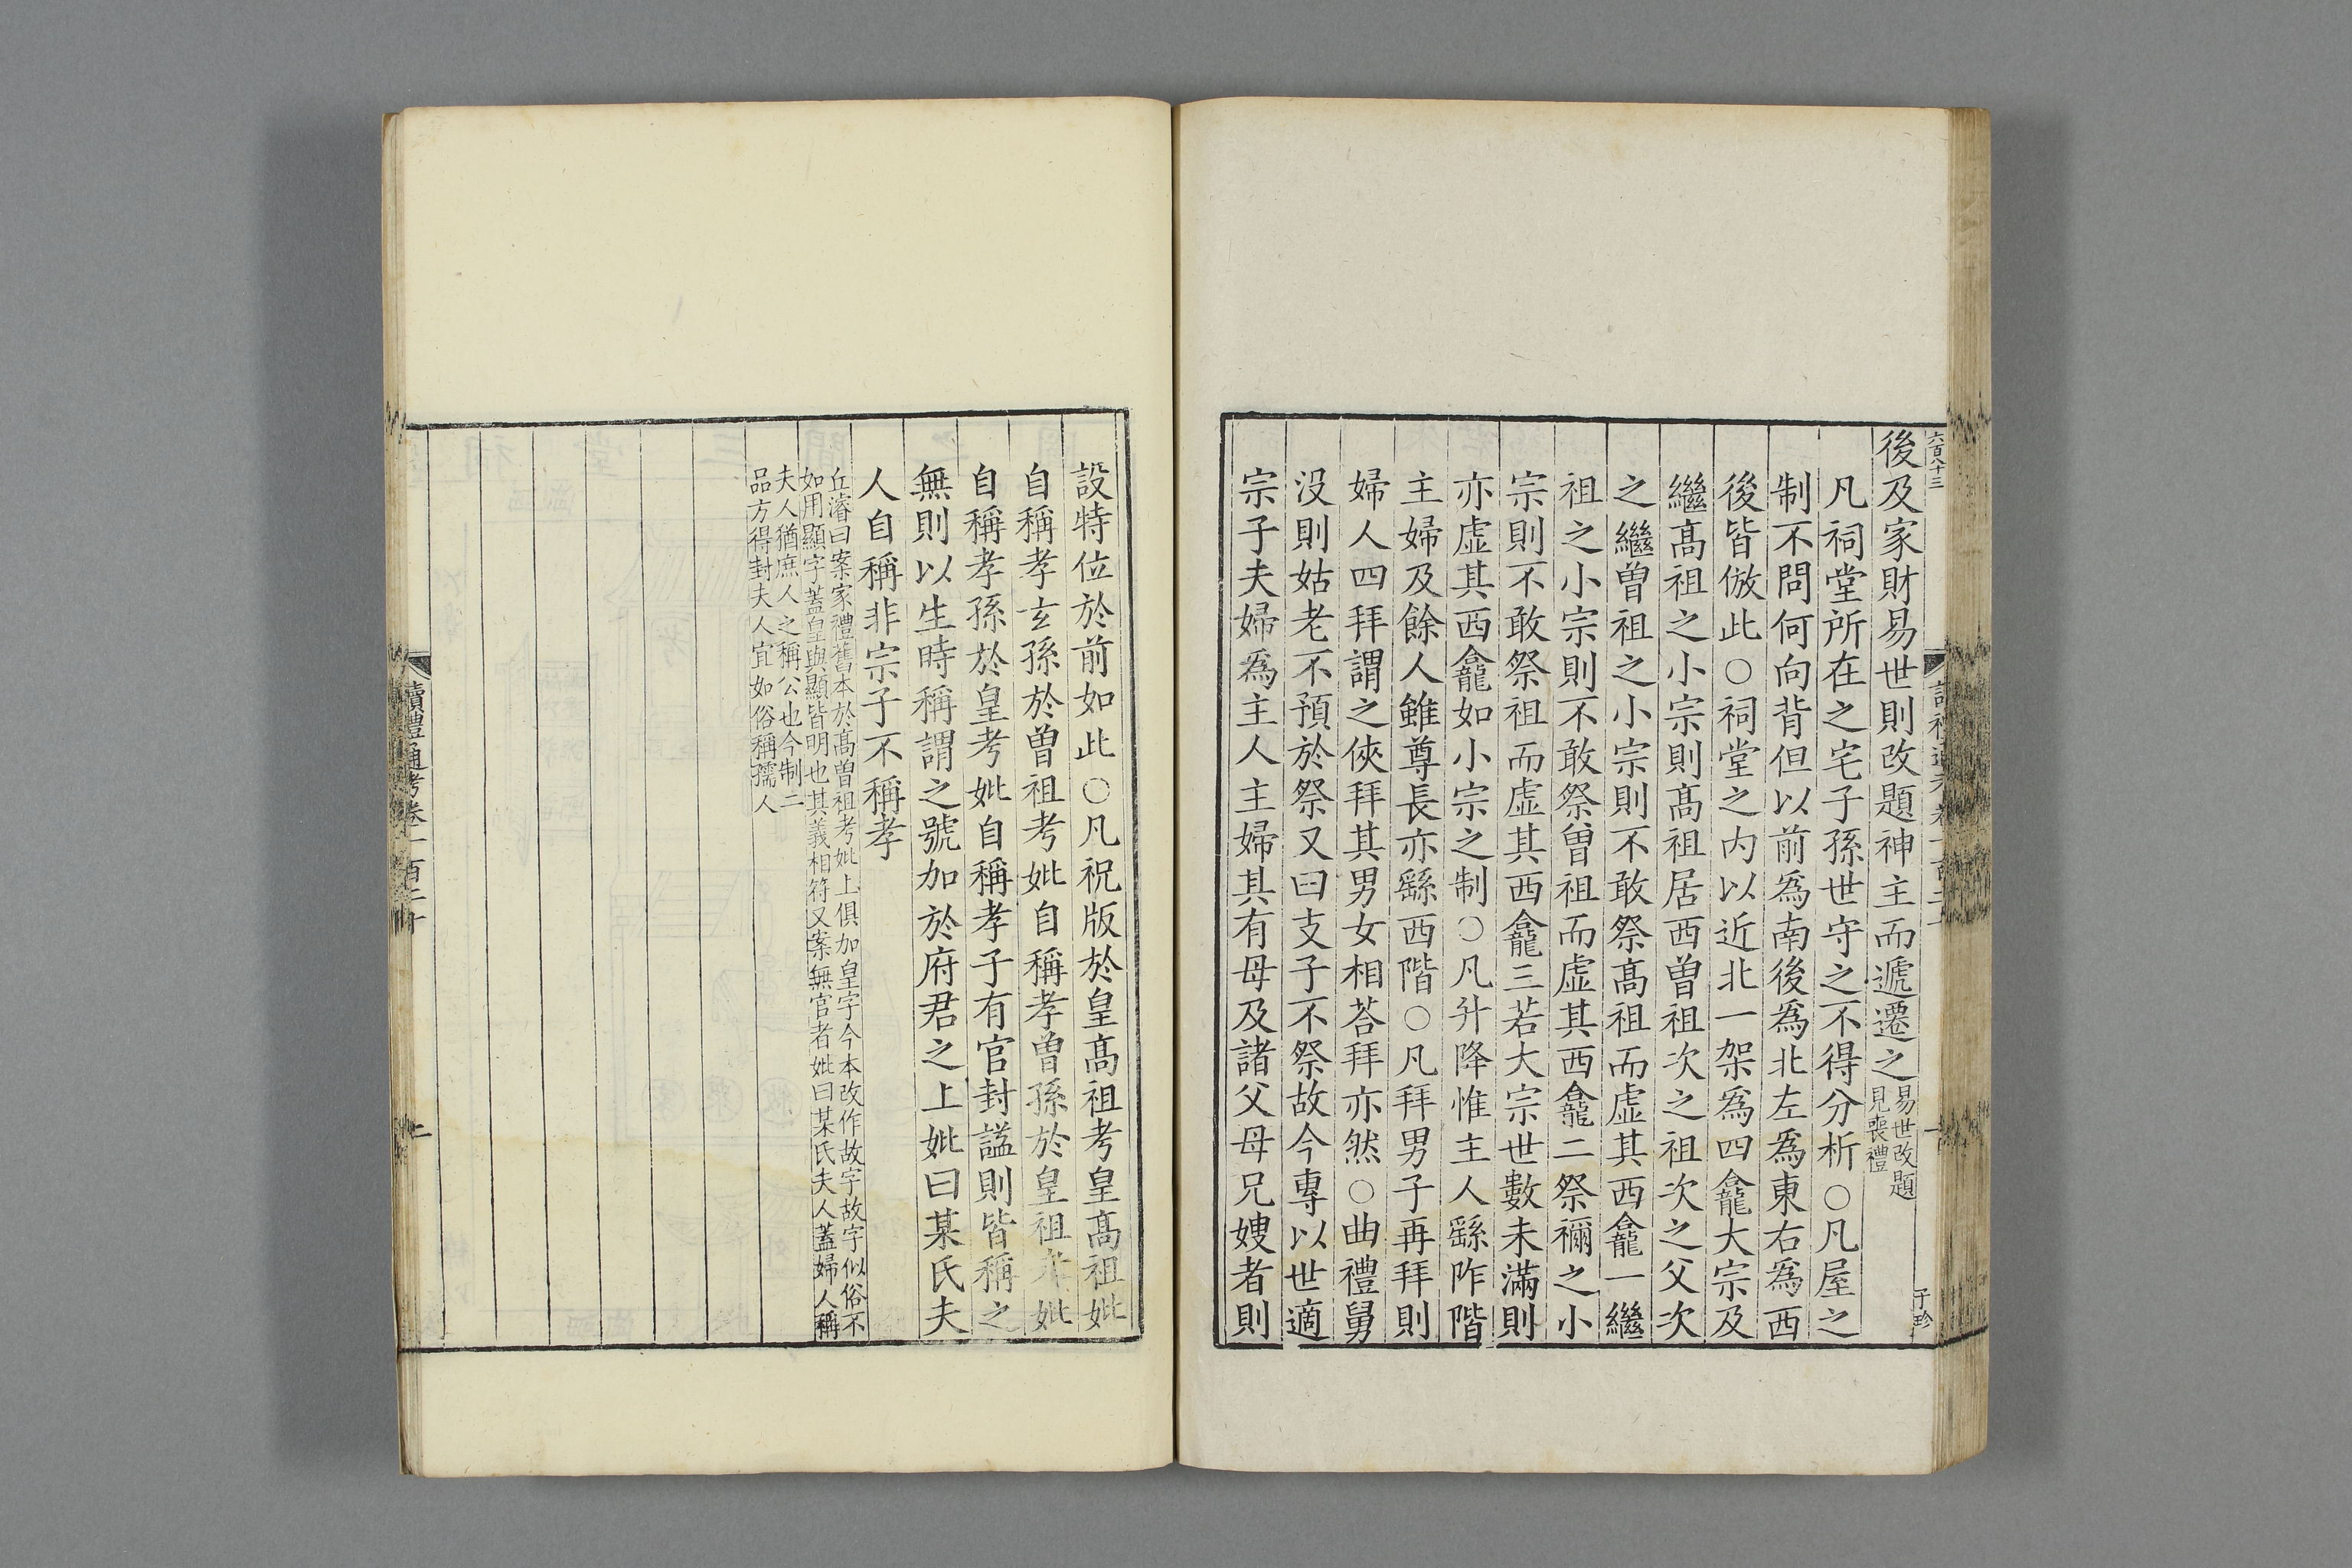 六百八十三
後及家財易世則改題神主而遞遷之易世改題
見喪禮
凡祠堂所在之宅子孫世守之不得分析○凡屋之
制不問何向背但以前爲南後爲北左爲東右爲西
後皆倣此○祠堂之内以近北一架爲四龕大宗及
繼髙祖之小宗則髙祖居西曾祖次之祖次之父次
之繼曾祖之小宗則不敢祭髙祖而虚其西龕一繼
祖之小宗則不敢祭曾祖而虚其西龕二祭禰之小
宗則不敢祭祖而虚其西龕三若大宗世數未滿則
亦虚其西龕如小宗之制○凡升降惟主人繇阼階
主婦及餘人雖尊長亦繇西階○凡拜男子再拜則
婦人四拜謂之俠拜其男女相荅拜亦然○曲禮舅
没則姑老不預於祭又曰支子不祭故今專以世適
宗子夫婦爲主人主婦其有母及諸父母兄嫂者則
一
子珍
設特位於前如此○凡祝版於皇髙祖考皇髙祖妣
自稱孝玄孫於曾祖考妣自稱孝曾孫於皇祖考妣
自稱孝孫於皇考妣自稱孝子有官封諡則皆稱之
無則以生時稱謂之號加於府君之上妣曰某氏夫
人自稱非宗子不稱孝
丘濬曰案家禮舊本於髙曾祖考妣上俱加皇字今本改作故字故字似俗不
如用顯字蓋皇與顯皆明也其義相符又案無官者妣曰某氏夫人蓋婦人稱
夫人猶庶人之稱公也今制二
品方得封夫人宜如俗稱孺人
讀禮通考卷一百二十
二